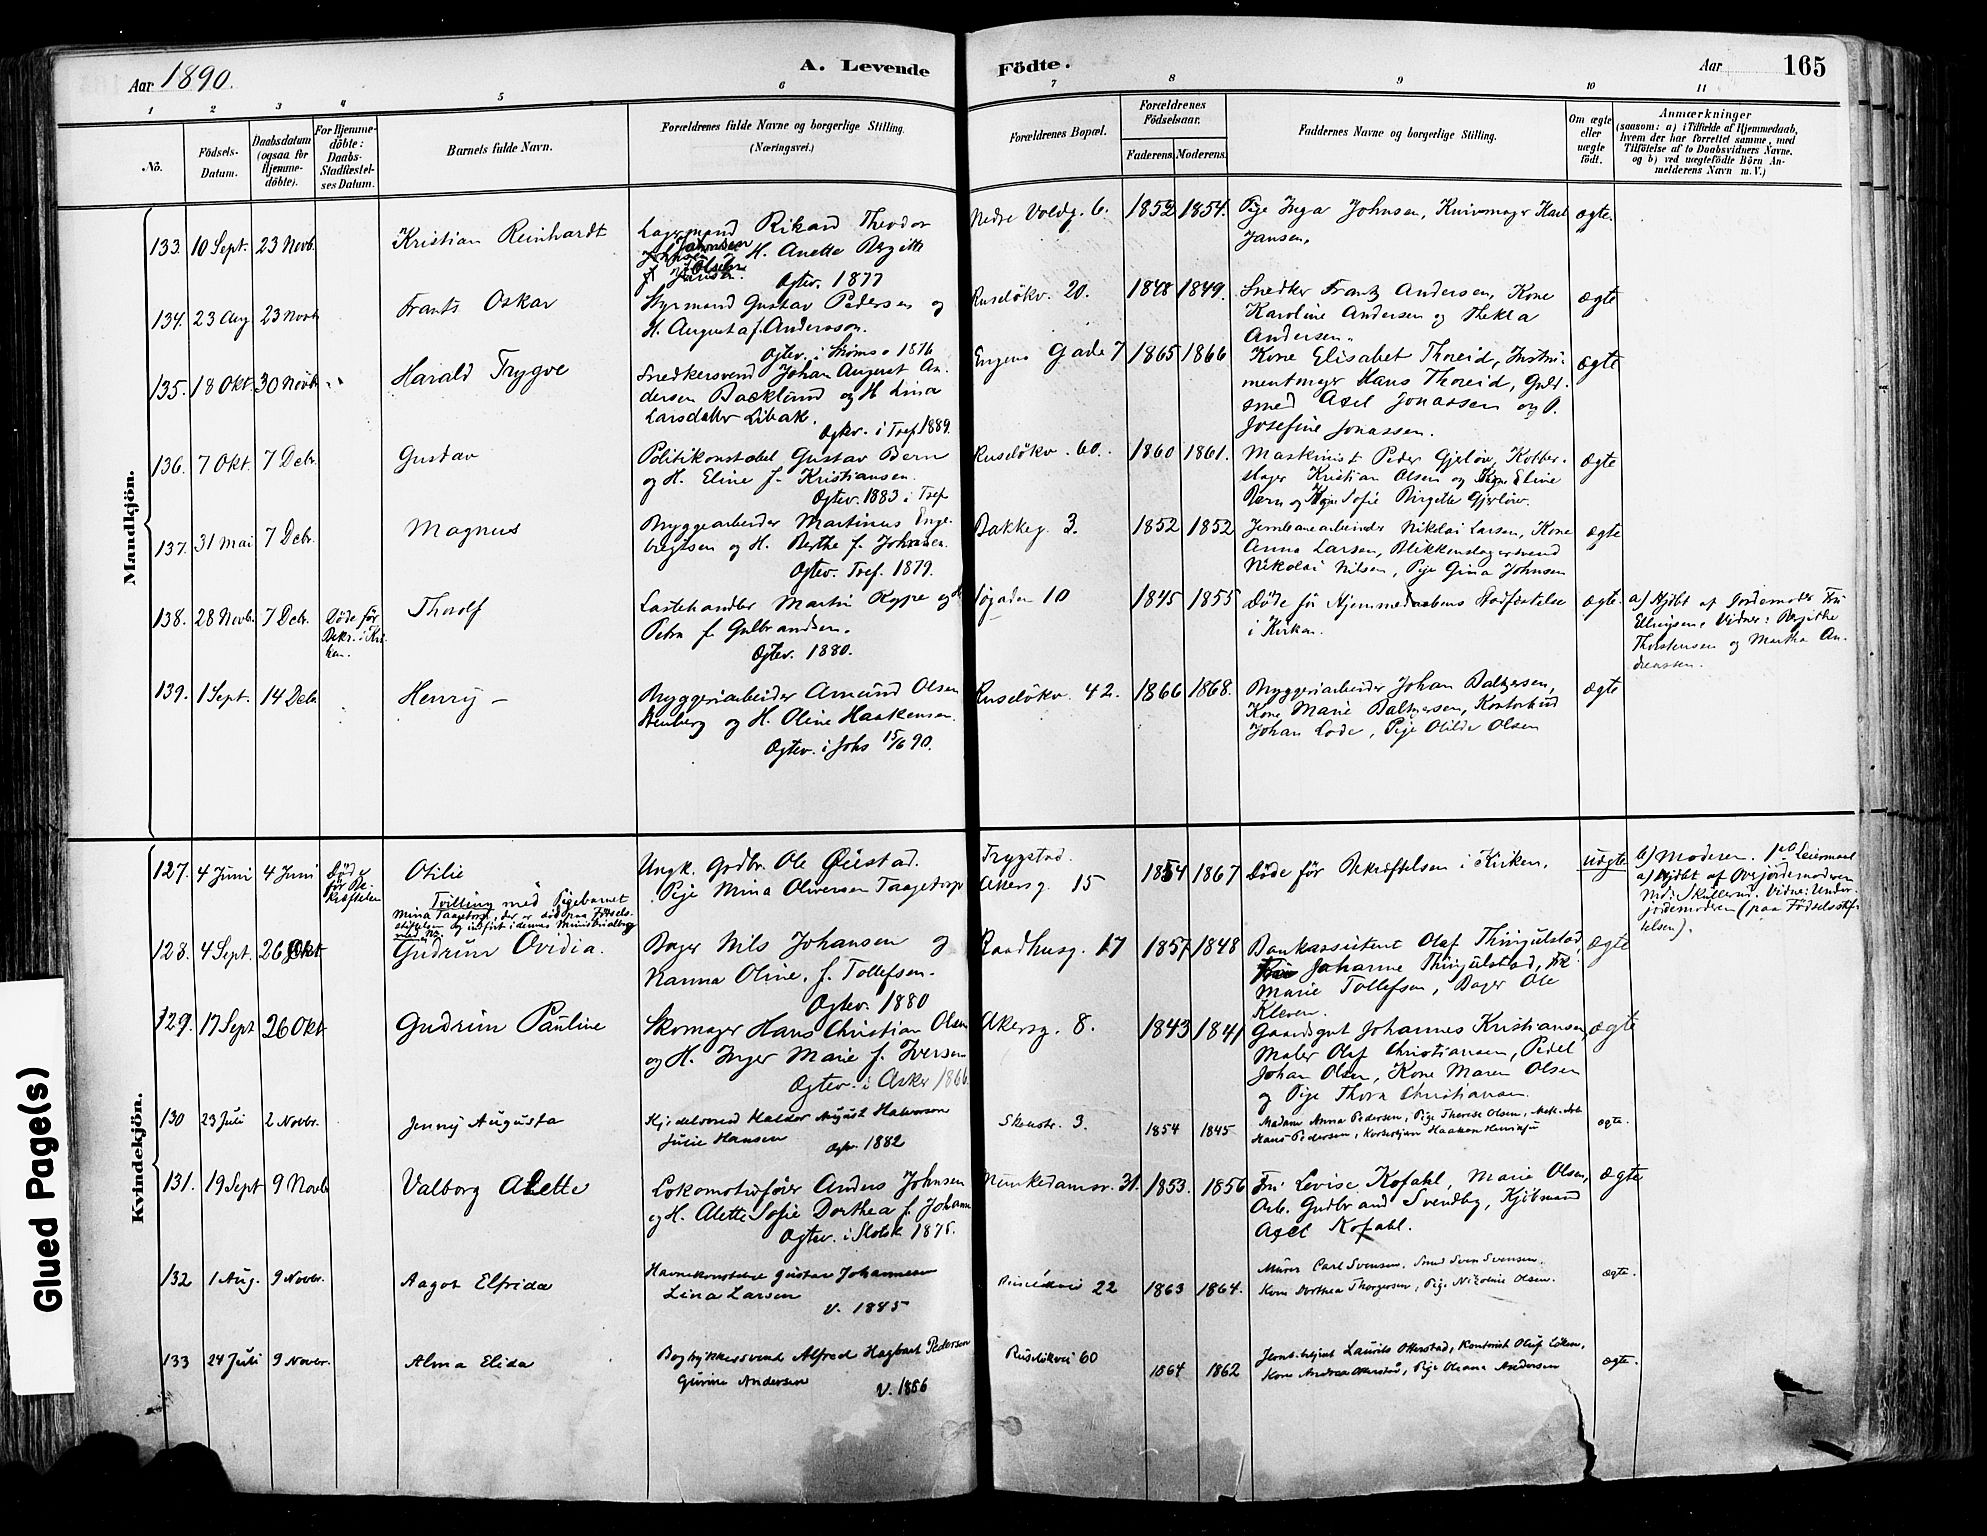 Aar 1890.
A. Levende Födte.
Aar 165
1 2 3 4 5 6 7 8 9 10 11
No.
Födsels-Datum.
Daabsdatum (ogsaa for Hjemme-döbte).
For Hjemme-döbte: Daabs-Stadfæstel-ses Datum.
Barnets fulde Navn.
Forældrenes fulde Navne og borgerlige Stilling.
(Næringsvei.)
Forældrenes Bopæl.
Forældrenes Födselsaar.
Faderens. Moderens.
Faddernes Navne og borgerlige Stilling.
Om ægte eller uægte födt.
Anmærkninger
(saasom: a) i Tilfælde af Hjemmedaab, hvem der har forrettet samme, med Tilföielse af to Daabsvidners Navne. og b) ved uægtefödte Börn An-melderens Navn m. V.)
Mandkjön.
133. 10 Sept. 23 Novb. Kristian Reinhardt
Lagermand Rikard Theodor
Johnsen H. Anette Bergitte
Ogtev. 1877
Nedre Voldg. 6. 1852 1854. Pige Inga Johnsen, Knivmager Karl
Jansen. ægte.
134. 23 Aug 23 Novb Frants Oskar
Styrmand Gustav Pedersen og
H. Augusta f. Andersson.
Ogtev. i Strömsø 1876
Ruselökv. 20. 1848 1849. Snedker Frantz Andersen, Kone
Karoline Andersen og Thekla
Andersen. ægte
135. 18 Okt. 30 Novb. Harald Trygve
Snedkersvend Johan August An-
dersen Backlund og H Lina
Larsdatter Libak.
Ogtev. i Tref 1889.
Engens Gade 7 1865 1866 Kone Elisabet Thoreid, Instru-
mentmager Hans Thoreid, Guld-
smed Axel Jonassen og P.
Josefine Jonassen. ægte
136. 7 Okt. 7 Debr. Gustav
Politikonstabel Gustav Bern
og H. Eline f. Kristiansen.
Ogtev. 1883 i Tref
Ruselökv. 60. 1860 1861. Maskinist Peder Gjerløw, Kobber-
slager Kristian Olsen og Kone Eline
Bern og Kone Sofie Birgitte Gjerløw. ægte
137. 31 Mai 7 Debr. Magnus
Bryggearbeider Martinus Enge-
bregtsen og H. Berthe f. Johnsen.
Ogtev. Tref. 1879.
Bakkeg. 3. 1852 1852 Jernbanearbeider Nikolai Larsen, Kone
Anna Larsen, Blikkenslagersvend
Nikolai Nilsen, Pige Gina Johnsen ægte
138. 28 Novb. 7 Debr. Døde før Bekr. i Kir-
ken. Thorolf
Lastehandler Martin Kyppe og H
Petra f. Gulbrandsen.
Ogtev. 1880.
Søgaden 10 1845 1855 Døde før Hjemmedaabens Stadfæstelse
i Kirken. ægte.
a) Hjdbt af Jordemoder Fru
Ellingsen, Vidner: Bergitte
Thorstensen og Martha An-
dreassen.
139. 1 Sept. 14 Debr Henry –
Bryggeriarbeider Amund Olsen
Stenberg og H. Oline Haakensen.
Ogtev. i Johs 15/6 90.
Ruselökv. 42. 1866 1868. Bryggeriarbeider Johan Baltzersen,
Kone Marie Baltzersen, Kontorbud
Johan Lode, Pige Otilde Olsen ægte
Kvindekjön.
127. 4 Juni 4 Juni Døde før Be-
kræftelsen Otilie
Tvilling med Pigebarnet
Mina Taagetorp, der er død paa Fødsels-
stiftelsen og indført i dennes Ministerialbog
med No.
Ungk. Grdbr. Ole Øiestad.
Pige Mina Oliversen Taagetorp
Trygstad.
Akersg. 15 1854 1867 Døde før Bekræftelsen i Kirken. uægte
b) Moderen. 1ste Leiermaal
a) Hjdbt af Overjordemoderen
Vid: Skullerud. Vidne: Under-
jordemoderen (paa Fødselsstif-
telsen).
128. 4 Sept. 26 Okt Gudrun Ovidia.
Bager Nils Johansen og
Nanna Oline, f. Tollefsen.
Ogtev. 1880
Raadhusg. 17 1857 1848 Bankassistent Olaf Thingulstad,
Johanne Thingulstad, Frk.
Marie Tollefsen, Bager Ole
Kleven. ægte
129. 17 Sept 26 Okt. Gudrun Pauline
Skomager Hans Christian Olsen
og H. Inger Marie f. Iversen
Ogtev. i Asker 1866.
Akersg. 8. 1843 1841 Gaardsgut Johannes Kristiansen,
Maler Olaf Christiansen, Pedel
Johan Olsen, Kone Maren Olsen
og Pige Thora Christiansen. ægte
130 23 Juli 2 Novbr. Jenny Augusta
Hjulelsmed Haldor August Halvorsen
Julie Hansen Ogtv. 1882
Skoustr. 3. 1854 1845 Madam Anna Pedersen, Pige Therese Olsen, Mek. Arb.
Hans Pedersen, Haakon Henriksen ægte.
131. 19 Sept 9 Novb Valborg Alette
Lokomotivfører Anders Johnsen
og H. Alette Sofie Dorthea f. Johans
Ogtev. i Slotsk 1875.
Munkedamsv. 31. 1853. 1856 Fru Levise Kofahl, Marie Olsen,
Arb. Gudbrand Svendby, Kjöbmand
Axel Kofahl. ægte
132 1 Aug. 9 Novbr. Aagot Elfrida
Havnekonstabel Gustav Johannesen
Lina Larsen
V. 1885
Ruselökvei 22 1863 1864. Murer Carl Svensen, Smed Sven Svensen.
Kone Dorthea Thorgersen, Pige Nicoline Olsen. ægte.
133 24 Juli 9 Novbr. Alma Elida
Bogtrykkersvend Alfred Hagbart Pedersen
Gurine Andersen V. 1886
Ruselökvei 60 1864 1862 Laurits Otterstad, Kontorist Oluf Eöken,
Kone Andrea Otterstad, Pige Oleana Andersen ægte.
Glued Page(s)